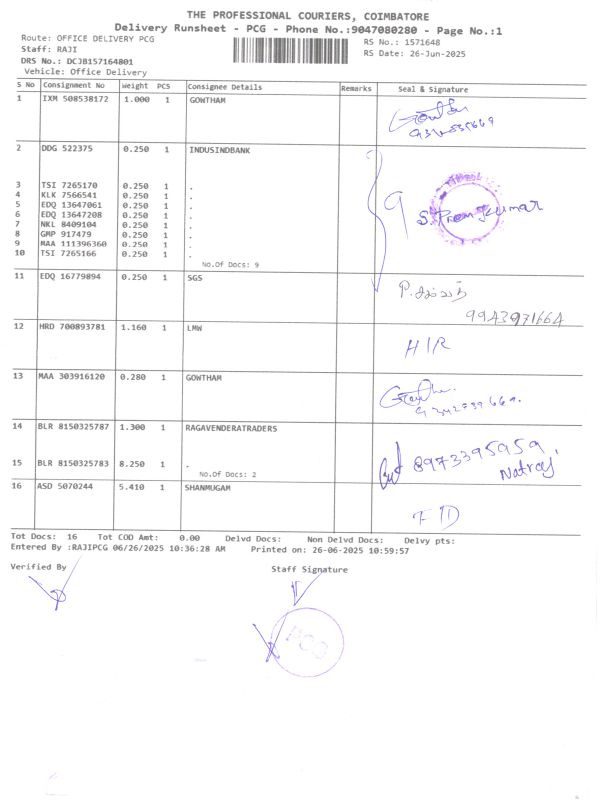 THE PROFESSIONAL COURIERS, COIMBATORE
Delivery Runsheet - PCG - Phone No.:9047080280 - Page No.:1
Route: OFFICE DELIVERY PCG
RS No.: 1571648
Staff: RAJI
RS Date: 26-Jun-2025
DRS No.: DCJB157164801
Vehicle: Office Delivery
S No Consignment No Weight PCS Consignee Details Remarks Seal & Signature
1 IXM 508538172 1.000 1 GOWTHAM
2 DDG 522375 0.250 1 INDUSINDBANK
3 TSI 7265170 0.250 1 .
4 KLK 7566541 0.250 1 .
5 EDQ 13647061 0.250 1 .
6 EDQ 13647208 0.250 1 .
S.Premkumar
7 NKL 8409104 0.250 1 .
8 GMP 917479 0.250 1 .
9 MAA 111396360 0.250 1 .
10 TSI 7265166 0.250 1 .
No.Of Docs: 9
9
11 EDQ 16779894 0.250 1 SGS
9943971664
12 HRD 700893781 1.160 1 LMW
H/R
13 MAA 303916120 0.280 1 GOWTHAM
14 BLR 8150325787 1.300 1 RAGAVENDERATRADERS
8973395959
15 BLR 8150325783 8.250 1 .
Natraj
No.Of Docs: 2
16 ASD 5070244 5.410 1 SHANMUGAM
F/D
Tot Docs: 16 Tot COD Amt: 0.00 Delvd Docs: Non Delvd Docs: Delvy pts:
Entered By :RAJIPCG 06/26/2025 10:36:28 AM Printed on: 26-06-2025 10:59:57
Verified By
Staff Signature
PCG